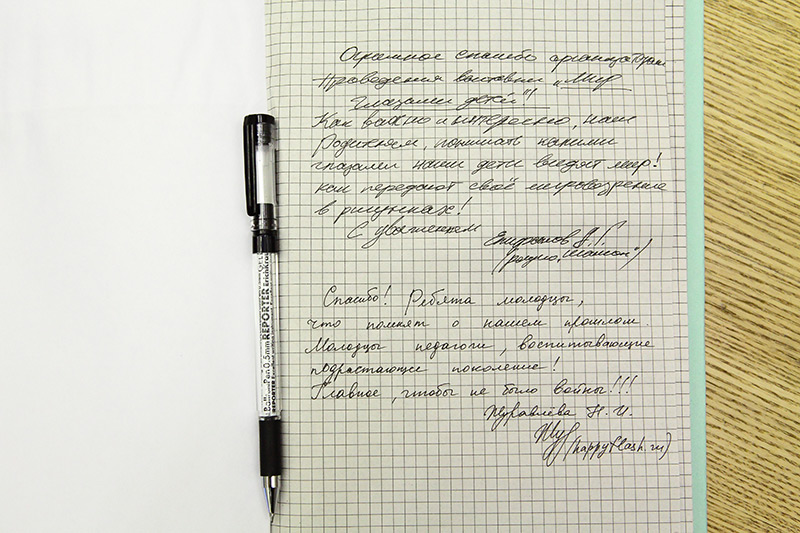 Огромное спасибо организаторам
проведения выставки „Мир
глазами детей"!
Как важно и интересно, нам
родителям, понимать какими
глазами наши дети видят мир!
как передают своё мировозрение
в рисунках!
С уважением
А. Г.
(радио „Шансон")
Спасибо! Ребята молодцы,
что помнят о нашем прошлом.
Молодцы педагоги, воспитывающие
подрастающее поколение!
Главное, чтобы не было войны!!!
Журавлева Н. И.
(happyflash.ru)
BallpenPen 0.5mm REPORTER ErichKrause